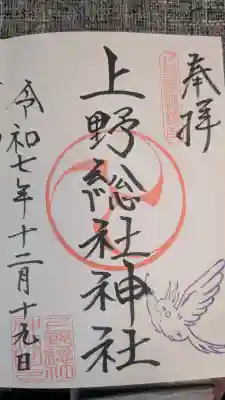 奉拝
上野総社神社
令和七年十二月十九日